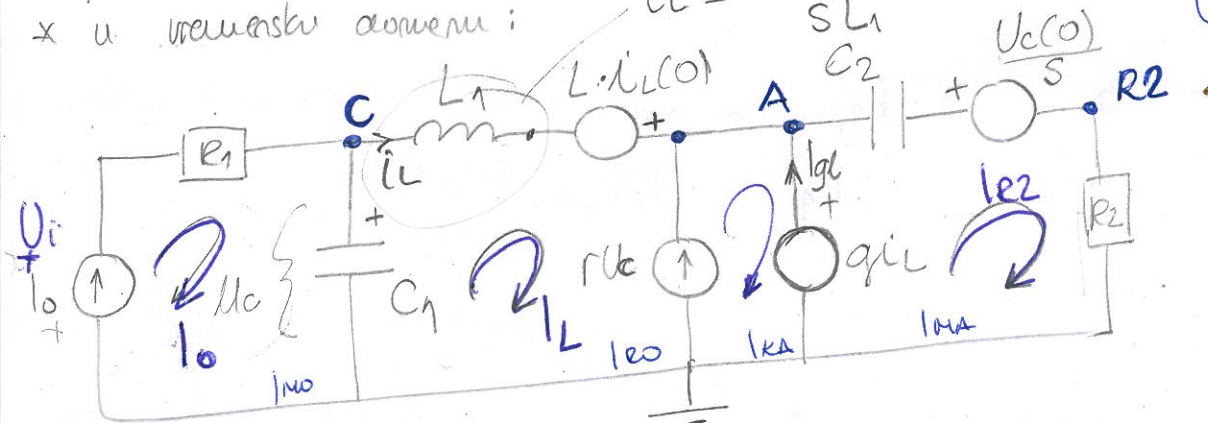 * u vremensku domenu :
SL1
C2
Uc(0)
S
L1
L·iL(0)
+
+
C
A
R2
R1
iL
Igl
+
IR2
R2
Ui
+
I0
+
Uc
+
C1
rUc
giL
I0
IL
IM0
IR0
IKA
IMA